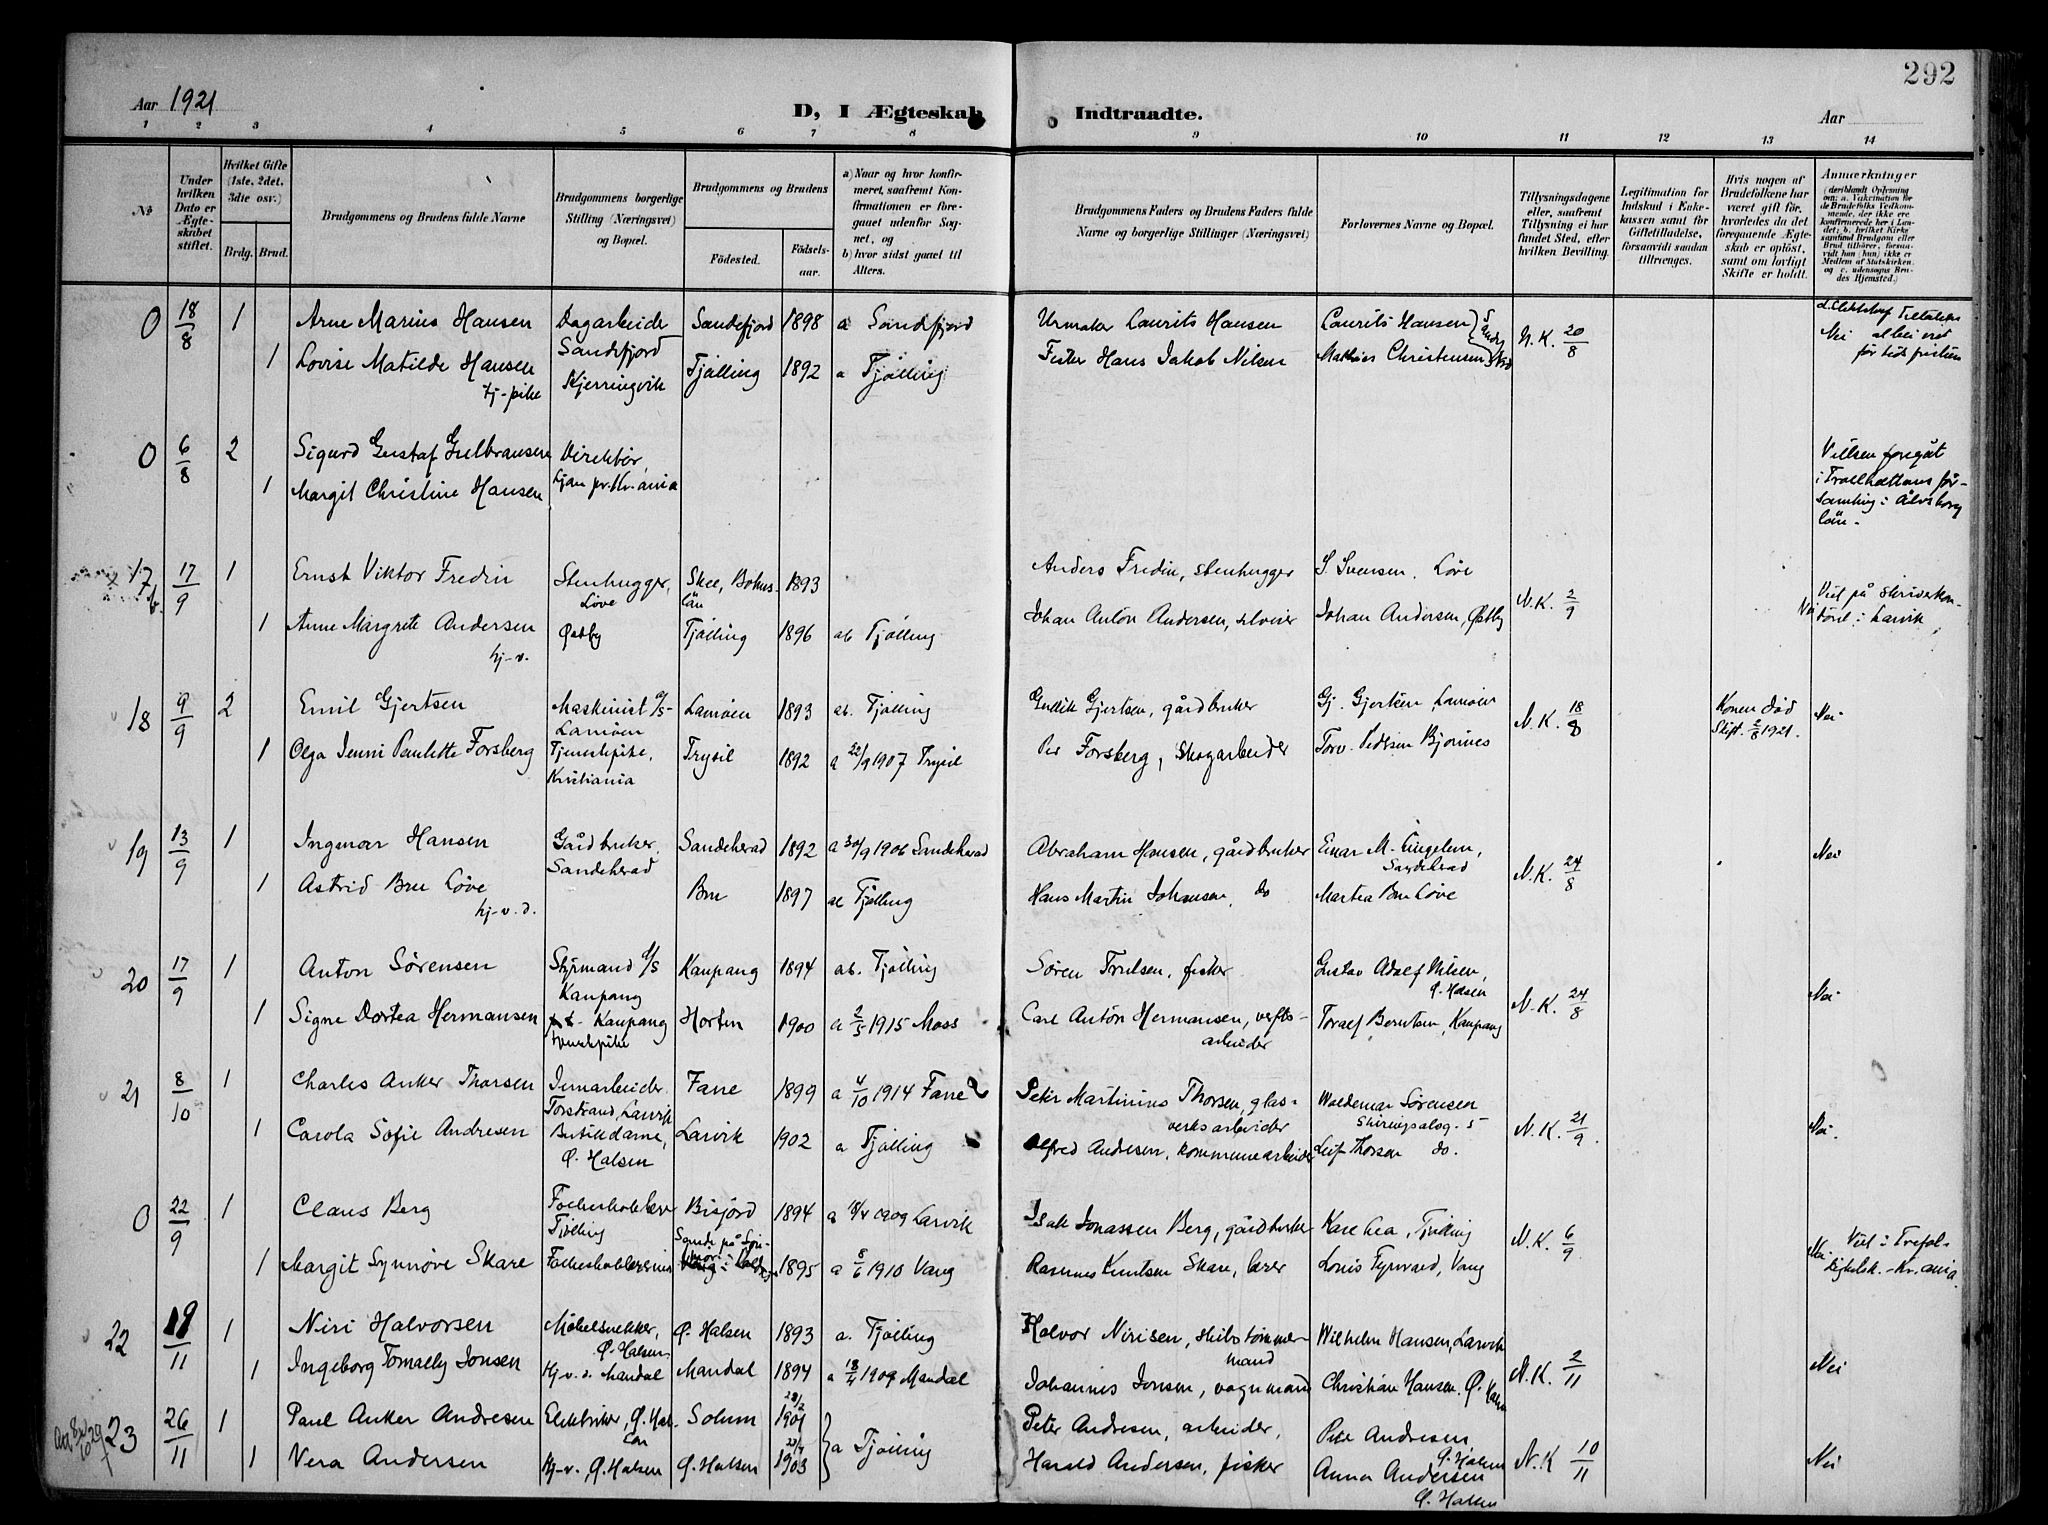 292
Aar 1921
D, I Ægteskab Indtraadte.
Aar
1 2 3 4 5 6 7 8 9 10 11 12 13 14
No
Under hvilken Dato er Ægteskabet stiftet.
Hvilket Gifte (1ste, 2det, 3die osv.)
Brdg. Brud.
Brudgommens og Brudens fulde Navne
Brudgommens borgerlige Stilling (Næringsvei) og Bopæl.
Brudgommens og Brudens
Fødested.
Fødselsaar.
a) Naar og hvor konfirmeret, saafremt Konfirmationen er foregaaet udenfor Sognet, og
b) hvor sidst gaaet til Alters.
Brudgommens Faders og Brudens Faders fulde Navne og borgerlige Stillinger (Næringsvei)
Forlovernes Navne og Bopæl.
Tillysningsdagene eller, saafremt Tillysning ei har fundet Sted, efter hvilken Bevilling.
Legitimation for Indskud i Enkekassen samt for Giftetilladelse, forsaavidt saadan tiltrænges.
Hvis nogen af Brudefolkene har været gift før, hvorledes da det foregaaende Ægteskab er opløst, samt om lovligt Skifte er holdt.
Anmærkninger
(deriblandt Oplysning om: a. Vakcination for de Brudefolks Vedkommende, der ikke ere konfirmerede her i Landet; b. hvilket Kirkesamfund Brudgom eller Brud tilhører, forsaavidt han (hun) ikke er Medlem af Statskirken og c. udensogns Brudes Hjemsted.)
0 18/8 1 Arne Marius Hansen Dagarbeider Sandefjord Sandefjord 1898 a Sandefjord Urmaker Laurits Hansen Laurits Hansen N.K. 20/8 Nei
1 Lovise Matilde Hansen tj-pike Kjerringvik Tjølling 1892 a Tjølling Fisker Hans Jakob Nilsen Mathias Christensen
0 6/8 2 Sigurd Gustaf Gulbransen Direktør, Ljan pr. Kr.ania
1 Margit Christine Hansen
Vielsen foregåt i Trollhättans församling i Älvsborg län.
17 17/9 1 Ernst Viktor Fredin Stenhugger, Løve Skee, Bohuslän 1893 Anders Fredin, stenhugger S. Svensen. Løve N.K. 2/9 Nei
1 Anne Margrete Andersen hj-v. Østby Tjølling 1896 ab Tjølling Johan Anton Andersen, Johan Andersen, Østby
Viet på skriverkontoret i Larvik
18 9/9 2 Emil Gjertsen Maskinist d/s - Lamøen Lamøen 1893 ab. Tjølling Gullik Gjertsen, gårdbruker Gj. Gjertsen, Lamøen N.K. 18/8 Konen død Skift. 2/8 1921. Nei
1 Olga Jenni Paulette Forsberg Tjenestpike, Kristiania Trysil 1892 a 22/9 1907 Trysil Per Forsberg, Skogarbeider Torv. Pedersen Bjønnes
19 13/9 1 Ingmar Hansen Gårdbruker, Sandeherad Sandeherad 1892 a 30/9 1906 Sandeherad Abraham Hansen, gårdbruker Einar M. Sandeherad N.K. 24/8 Nei
1 Astrid Bru Løve hj-v.d. Bru 1897 Tjølling Hans Martin Johansen, do Martea Bru Løve
20 17/9 1 Anton Sørensen Styrmand d/s Kaupang Kaupang 1894 ab. Tjølling Søren Trulsen, fisker Gustav Adolf Nilsen, Ø. Halsen N.K. 24/8 Nei
1 Signe Dortea Hermansen p.t. Kaupang Horten 1900 a 2/5 1915 Moss Carl Anton Hermansen, verftsarbeider Toralf Berntsen, Kaupang
21 8/10 1 Charles Anker Thorsen Jernarbeider Torstrand, Larvik Fane 1899 a 4/10 1914 Fane Peter Martinius Thorsen, glasverksarbeider Waldemar Sørensen N.K. 21/9 Nei.
1 Carola Sofie Andresen Butikdame, Ø. Halsen Larvik 1902 a Tjølling Alfred Andresen, kommunearbeider Leif Thorsen do.
0 22/9 1 Claus Berg Folkeskolelærer Tjølling 1894 a 18/4 1909 Larvik Isak Jonassen Berg, gårdbruker Kåre Lea, Tjølling N.K. 6/9 Nei
1 Margit Synnøve Skare Folkeskolelærerinne Sande på Sønmør 1895 a 5/6 1910 Vang Rasmus Knutsen Skare, lærer Vang
Viet i Trefoldighetsk. - Kr.ania.
22 19/11 1 Niri Halvorsen Møbelsnekker, Ø. Halsen Ø. Halsen 1893 a. Tjølling Halvor Nirisen, skibstømmermand Wilhelm Hansen, Larvik N.K. 2/11 Nei
1 Ingeborg Tomally Jonsen Hj-v. i Mandal Mandal 1894 a 18/4 1909 Mandal Johannes Jonsen, vognmand Christian Hansen. Ø. Halsen
23 26/11 1 Paul Anker Andresen Elektriker, Ø. Halsen Solum 28/2 1901 a Tjølling Peter Andresen, arbeider, Peter Andresen Ø. Halsen N.K 10/11 Nei
1 Vera Andersen Hj-v., Ø. Halsen Ø. Halsen 1903 Harald Andersen, fisker Anna Andersen Ø. Halsen